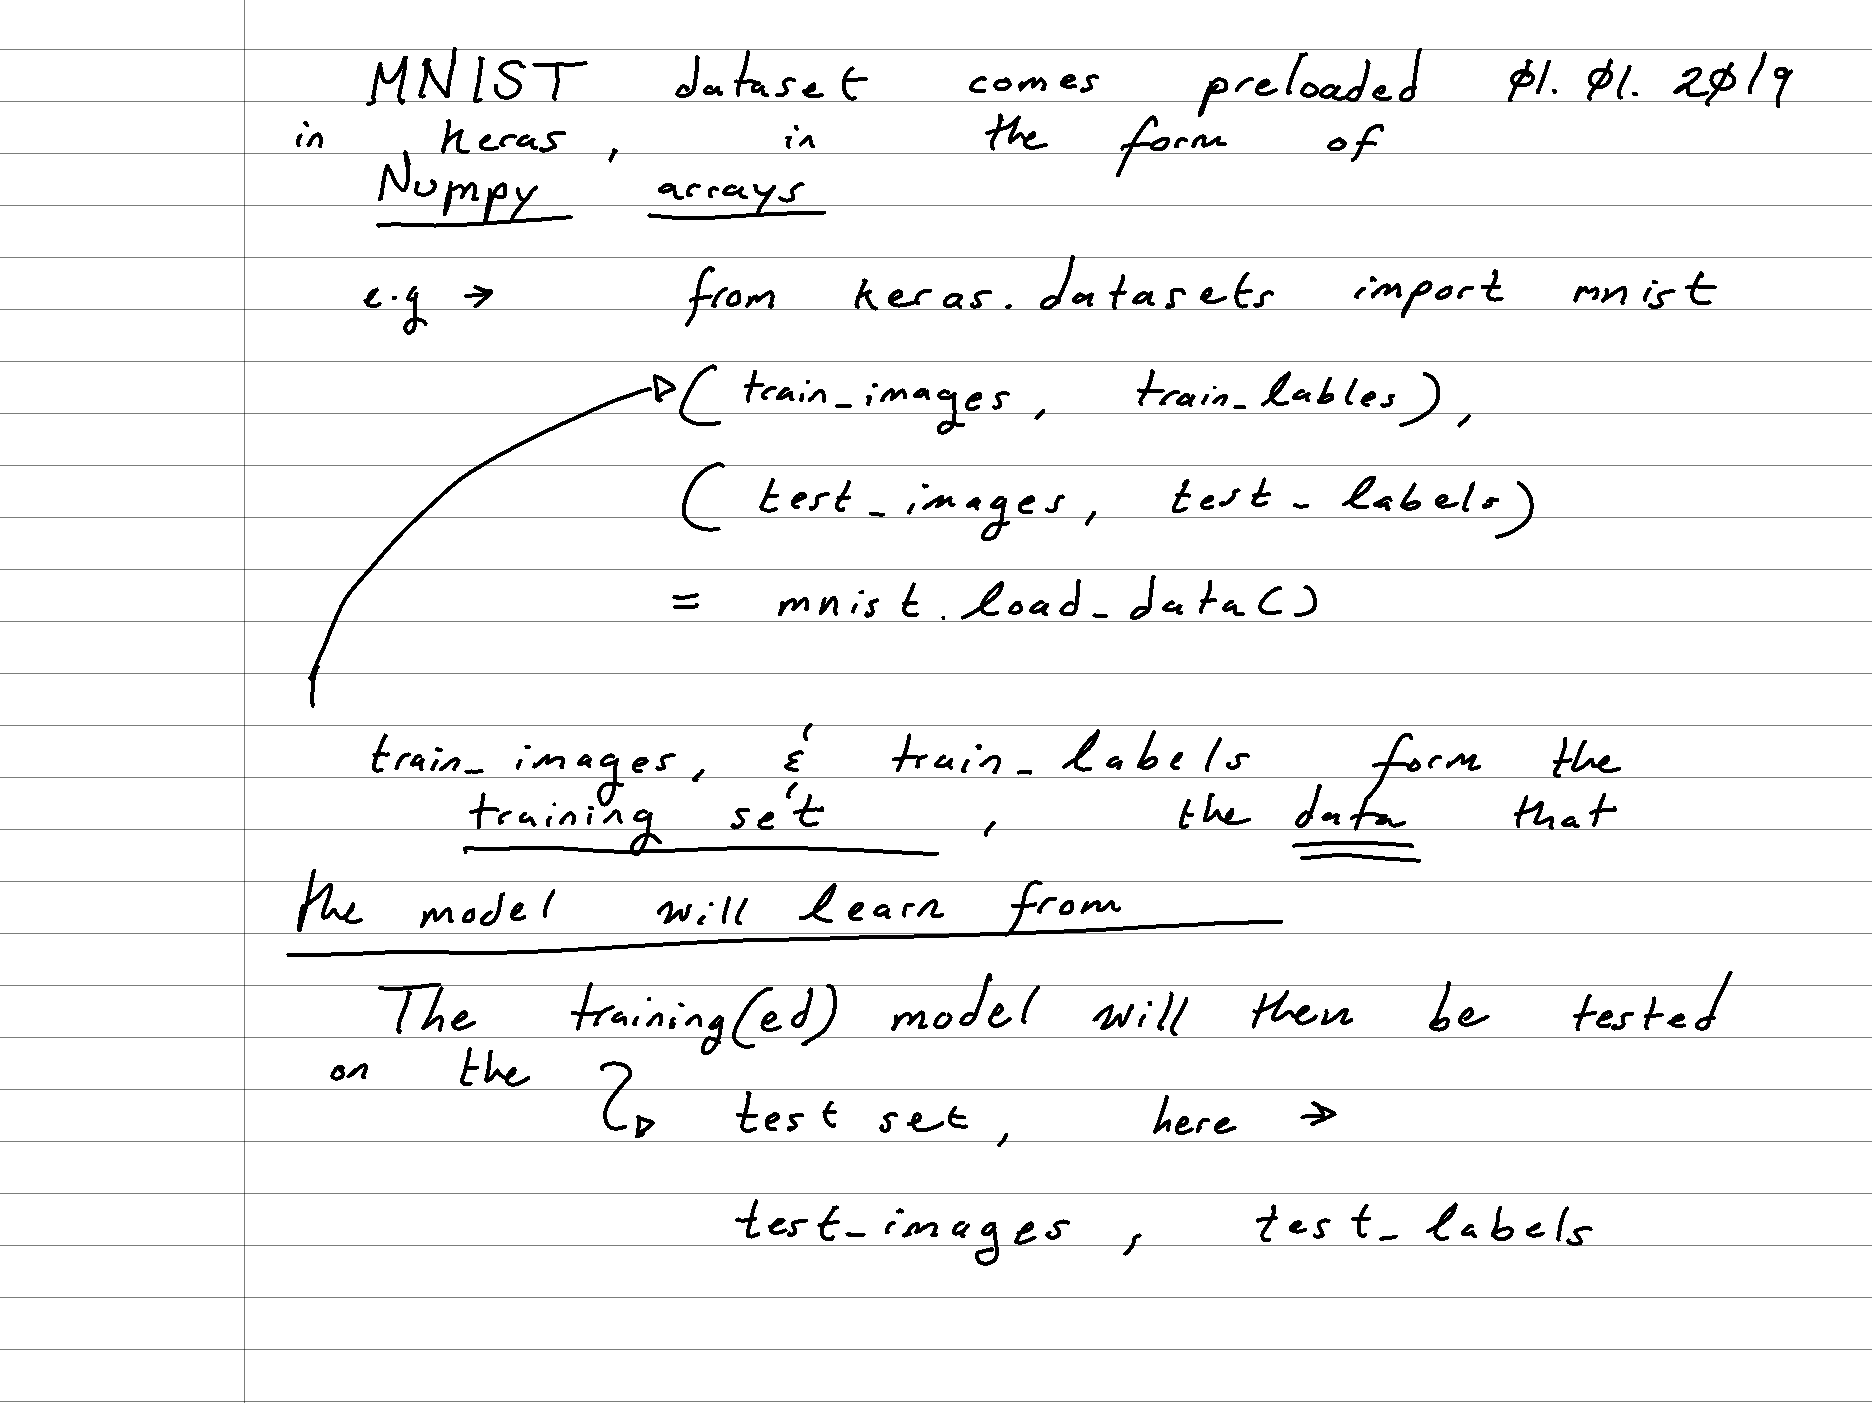 MNIST dataset comes preloaded 01.01.2019
in keras, in the form of
Numpy arrays
e.g → from keras.datasets import mnist
(train_images, train_lables),
(test_images, test_labels)
= mnist.load_data()
train_images, & train_labels form the
training set, the data that
the model will learn from
The training(ed) model will then be tested
on the
test set, here →
test_images, test_labels